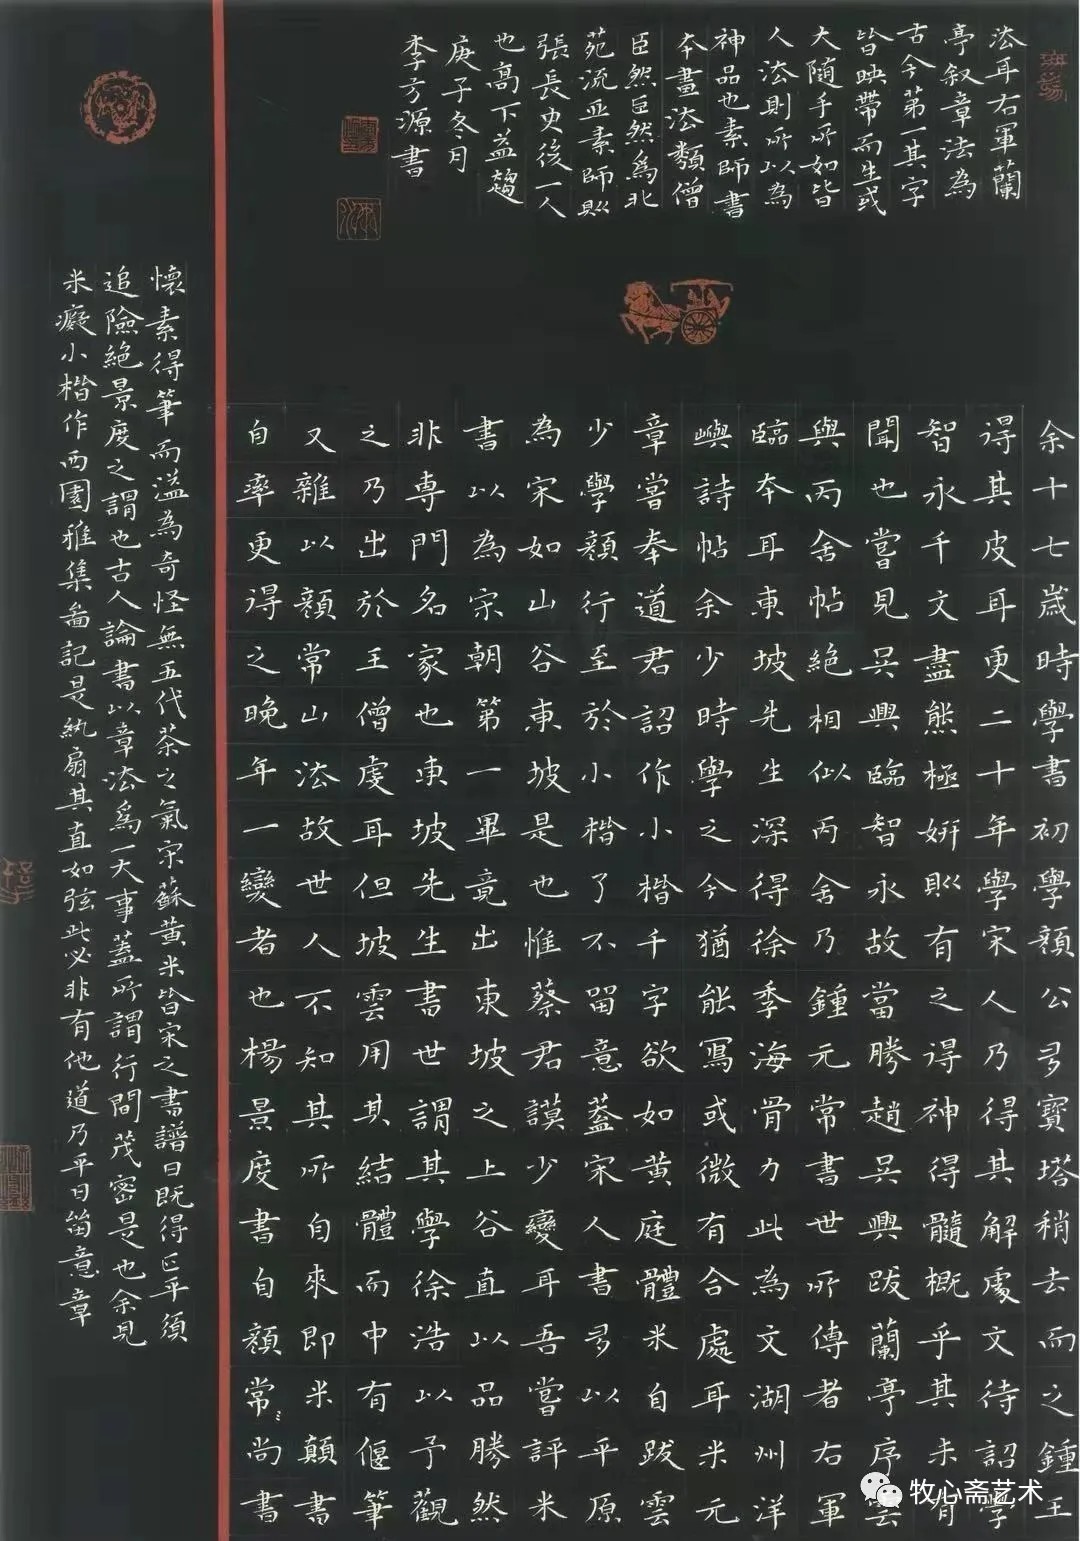 余十七歲時學書初學顏公多寶塔稍去而之鍾王
得其皮耳更二十年學宋人乃得其解處文待詔學
智永千文盡態極妍則有之得神得髓概乎其未有
聞也嘗見吳興臨智永故當勝趙吳興跋蘭亭序雲
與丙舍帖絕相似丙舍乃鍾元常書世所傳者右軍
臨本耳東坡先生深得徐季海骨力此為文湖州洋
嶼詩帖余少時學之今猶能寫或微有合處耳米元
章嘗奉道君詔作小楷千字欲如黃庭體米自跋雲
少學顏行至於小楷了不留意蓋宋人書多以平原
為宋如山谷東坡是也惟蔡君謨少變耳吾嘗評米
書以為宋朝第一畢竟出東坡之上谷直以品勝然
非專門名家也東坡先生書世謂其學徐浩以予觀
之乃出於王僧虔耳但坡雲用其結體而中有偃筆
又雜以顏常山法故世人不知其所自來即米顛書
自率更得之晚年一變者也楊景度書自顏常尚書
懷素得筆而溢為奇怪無五代茶之氣宋蘇黃米皆宋之書譜曰既得正平須
追險絕景度之謂也古人論書以章法為一大事蓋所謂行間茂密是也余見
米癡小楷作西園雅集圖記是紈扇其直如弦此必非有他道乃平日留意章
法耳右軍蘭
亭叙章法為
古今第一其字
皆映帶而生或
大隨手所如皆
人法則所以為
神品也素師書
本畫法類僧
巨然巨然為北
苑流亞素師則
張長史後一人
也高下益趨
庚子冬月
李方源書
牧心斋艺术